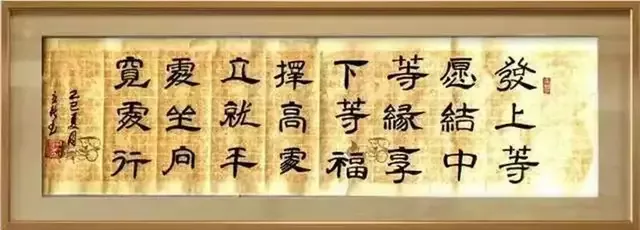 發上等
愿結中
等緣享
下等福
擇高處
立就平
處坐向
寬處行
己巳夏月